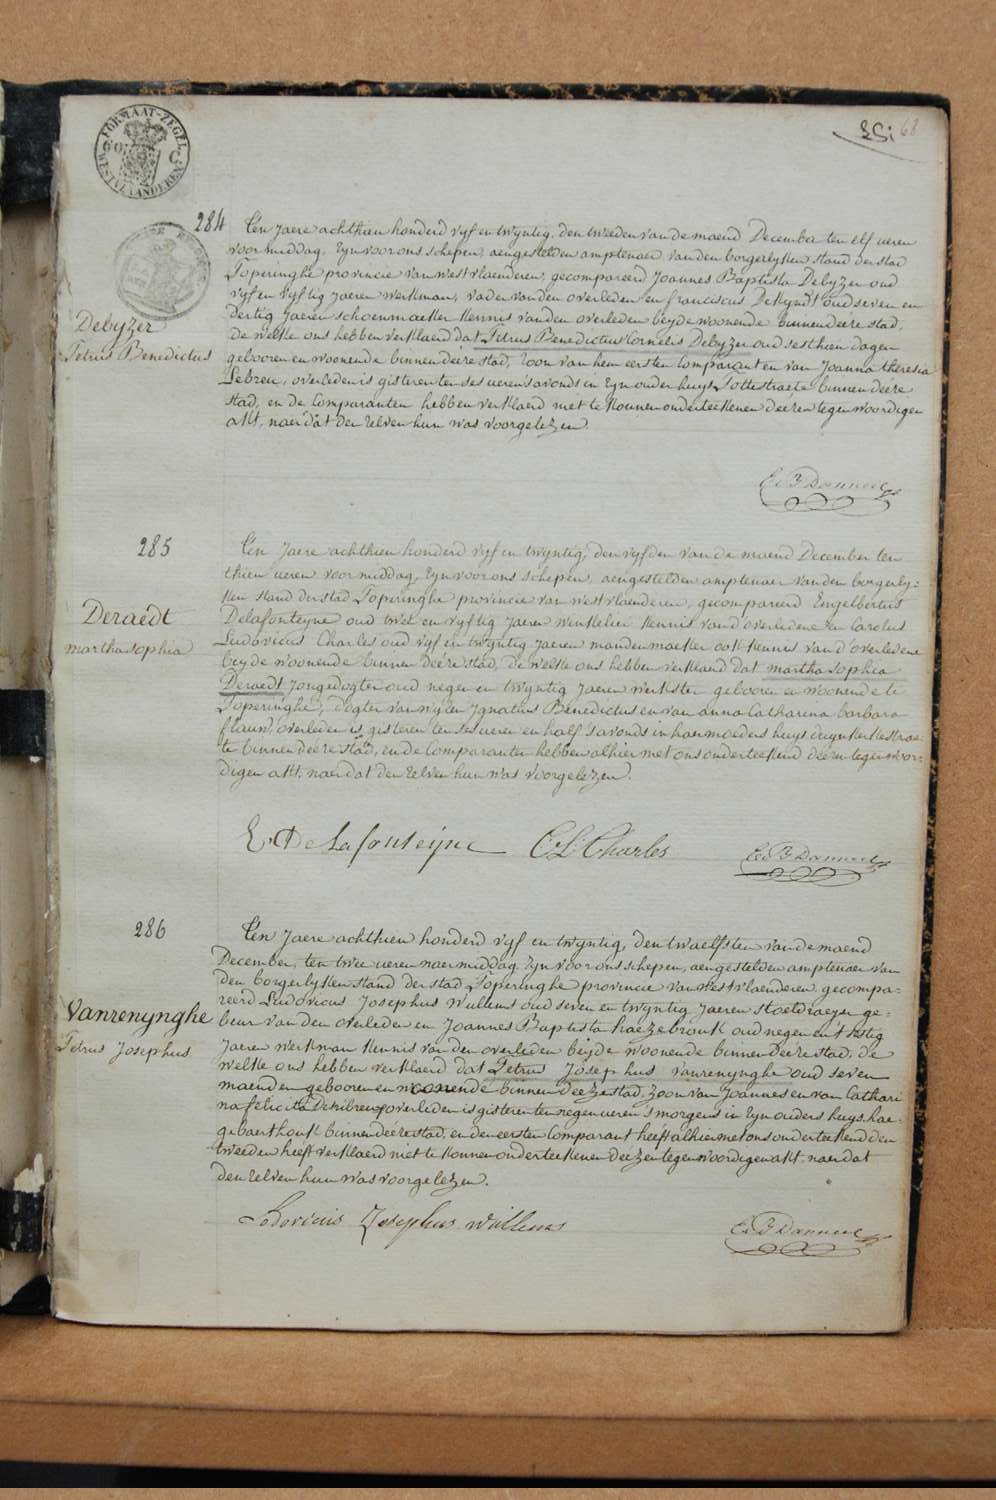 FORMAAT-ZEGEL
WESTVLAANDEREN
68
284
Debyzer
Petrus Benedictus
Ten Jaere achthien honderd vyf en twyntig, den tweeden van de maend December ten elf ueren
voormiddag, Zyn voor ons schepen, aengestelden amptenaer van den borgerlyken stand der stad
Poperinghe provincie van westvlaenderen, gecompareerd Joannes Baptista Debyzer oud
vyf en vyftig Jaeren werkman, vader van den overleden en franciscus DeKyndt oud seven en
dertig Jaeren schoenmaeker Kennis van den overleden beyde woonende binnen deéze stad,
de welke ons hebben verklaerd dat Petrus Benedictus Cornelis Debyzer oud sesthien dagen
gebooren en woonende binnen deeze stad, zoon van hem eersten Comparant en van Joanna theresia
Lebreu, overleden is gisteren ten ses ueren 's avonds en Zyn ouder huys Pottestraete binnen deéze
stad, en de Comparanten hebben verklaerd niet te konnen onderteekenen deezen tegenwoordigen
akt, naer dat den Zelven hun was voorgelezen.
285
Deraedt
martha sophia
Ten Jaere achthien honderd vyf en twyntig, den vyfden van de maend December ten
thien ueren voormiddag, Zyn voor ons schepen, aengestelden amptenaer van den borgerly-
ken stand der stad Poperinghe provincie van westvlaenderen, gecompareerd Engelbertus
Delafonteyne oud twee en vyftig Jaeren winkelier Kennis van d'overledene en Carolus
Ludovicus Charles oud vyf en twyntig Jaeren mandenmaeker ook Kennis van d'overledene
beyde woonende binnen deéze stad, de welke ons hebben verklaerd dat martha Sophia
Deraedt Jongedogter oud negen en twyntig Jaeren werkster gebooren en woonende te
Poperinghe, dogter van wylen Ignatius Benedictus en van anna Catharina barbara
overleden is gisteren ten ses ueren en half 's avonds in haer moeders huys
te binnen deeze stad, en de Comparanten hebben alhier met ons onderteekend deezen tegenwoor-
digen akt, naer dat den Zelven hun was voorgelezen.
E De Lafonteijne C L Charles
286
Vanrenynghe
Petrus Josephus
Ten Jaere achthien honderd vyf en twyntig, den twaelfsten van de maend
December, ten twee ueren naermiddag Zyn voor ons schepen, aengestelden amptenaer van
den borgerlyken stand der stad Poperinghe provincie van westvlaenderen gecompa-
reerd Ludovicus Josephus Willems oud seven en twyntig Jaeren stoeldraeyer ge-
beur van den overleden en Joannes Baptista haezebrouk oud negen en t'sestig
Jaeren werkman Kennis van den overleden beyde woonende binnen deeze stad, de
welke ons hebben verklaerd dat Petrus Josephus Vanrenynghe oud seven
maenden gebooren en woonende binnen deeze stad, zoon van Joannes en van Cathari
na felicita overleden is gisteren ten negen ueren 's morgens in Zyn ouders huys hae-
binnen deéze stad, en den eersten Comparant heeft alhier met ons onderteekend den
tweeden heeft verklaerd niet te konnen onderteekenen deezen tegenwoordigen akt, naer dat
den Zelven hun was voorgelezen.
Lodovicus Josephus Willems